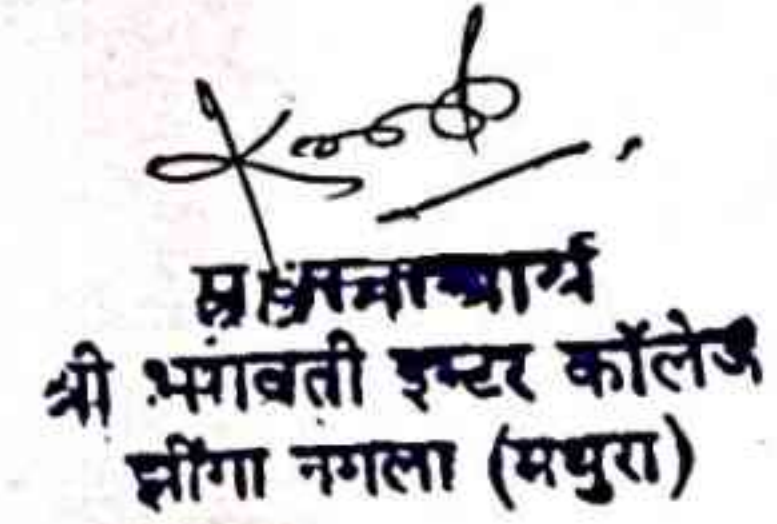 प्रधानाचार्य
श्री भगवती इण्टर कॉलेज
झींगा नगला (मथुरा)